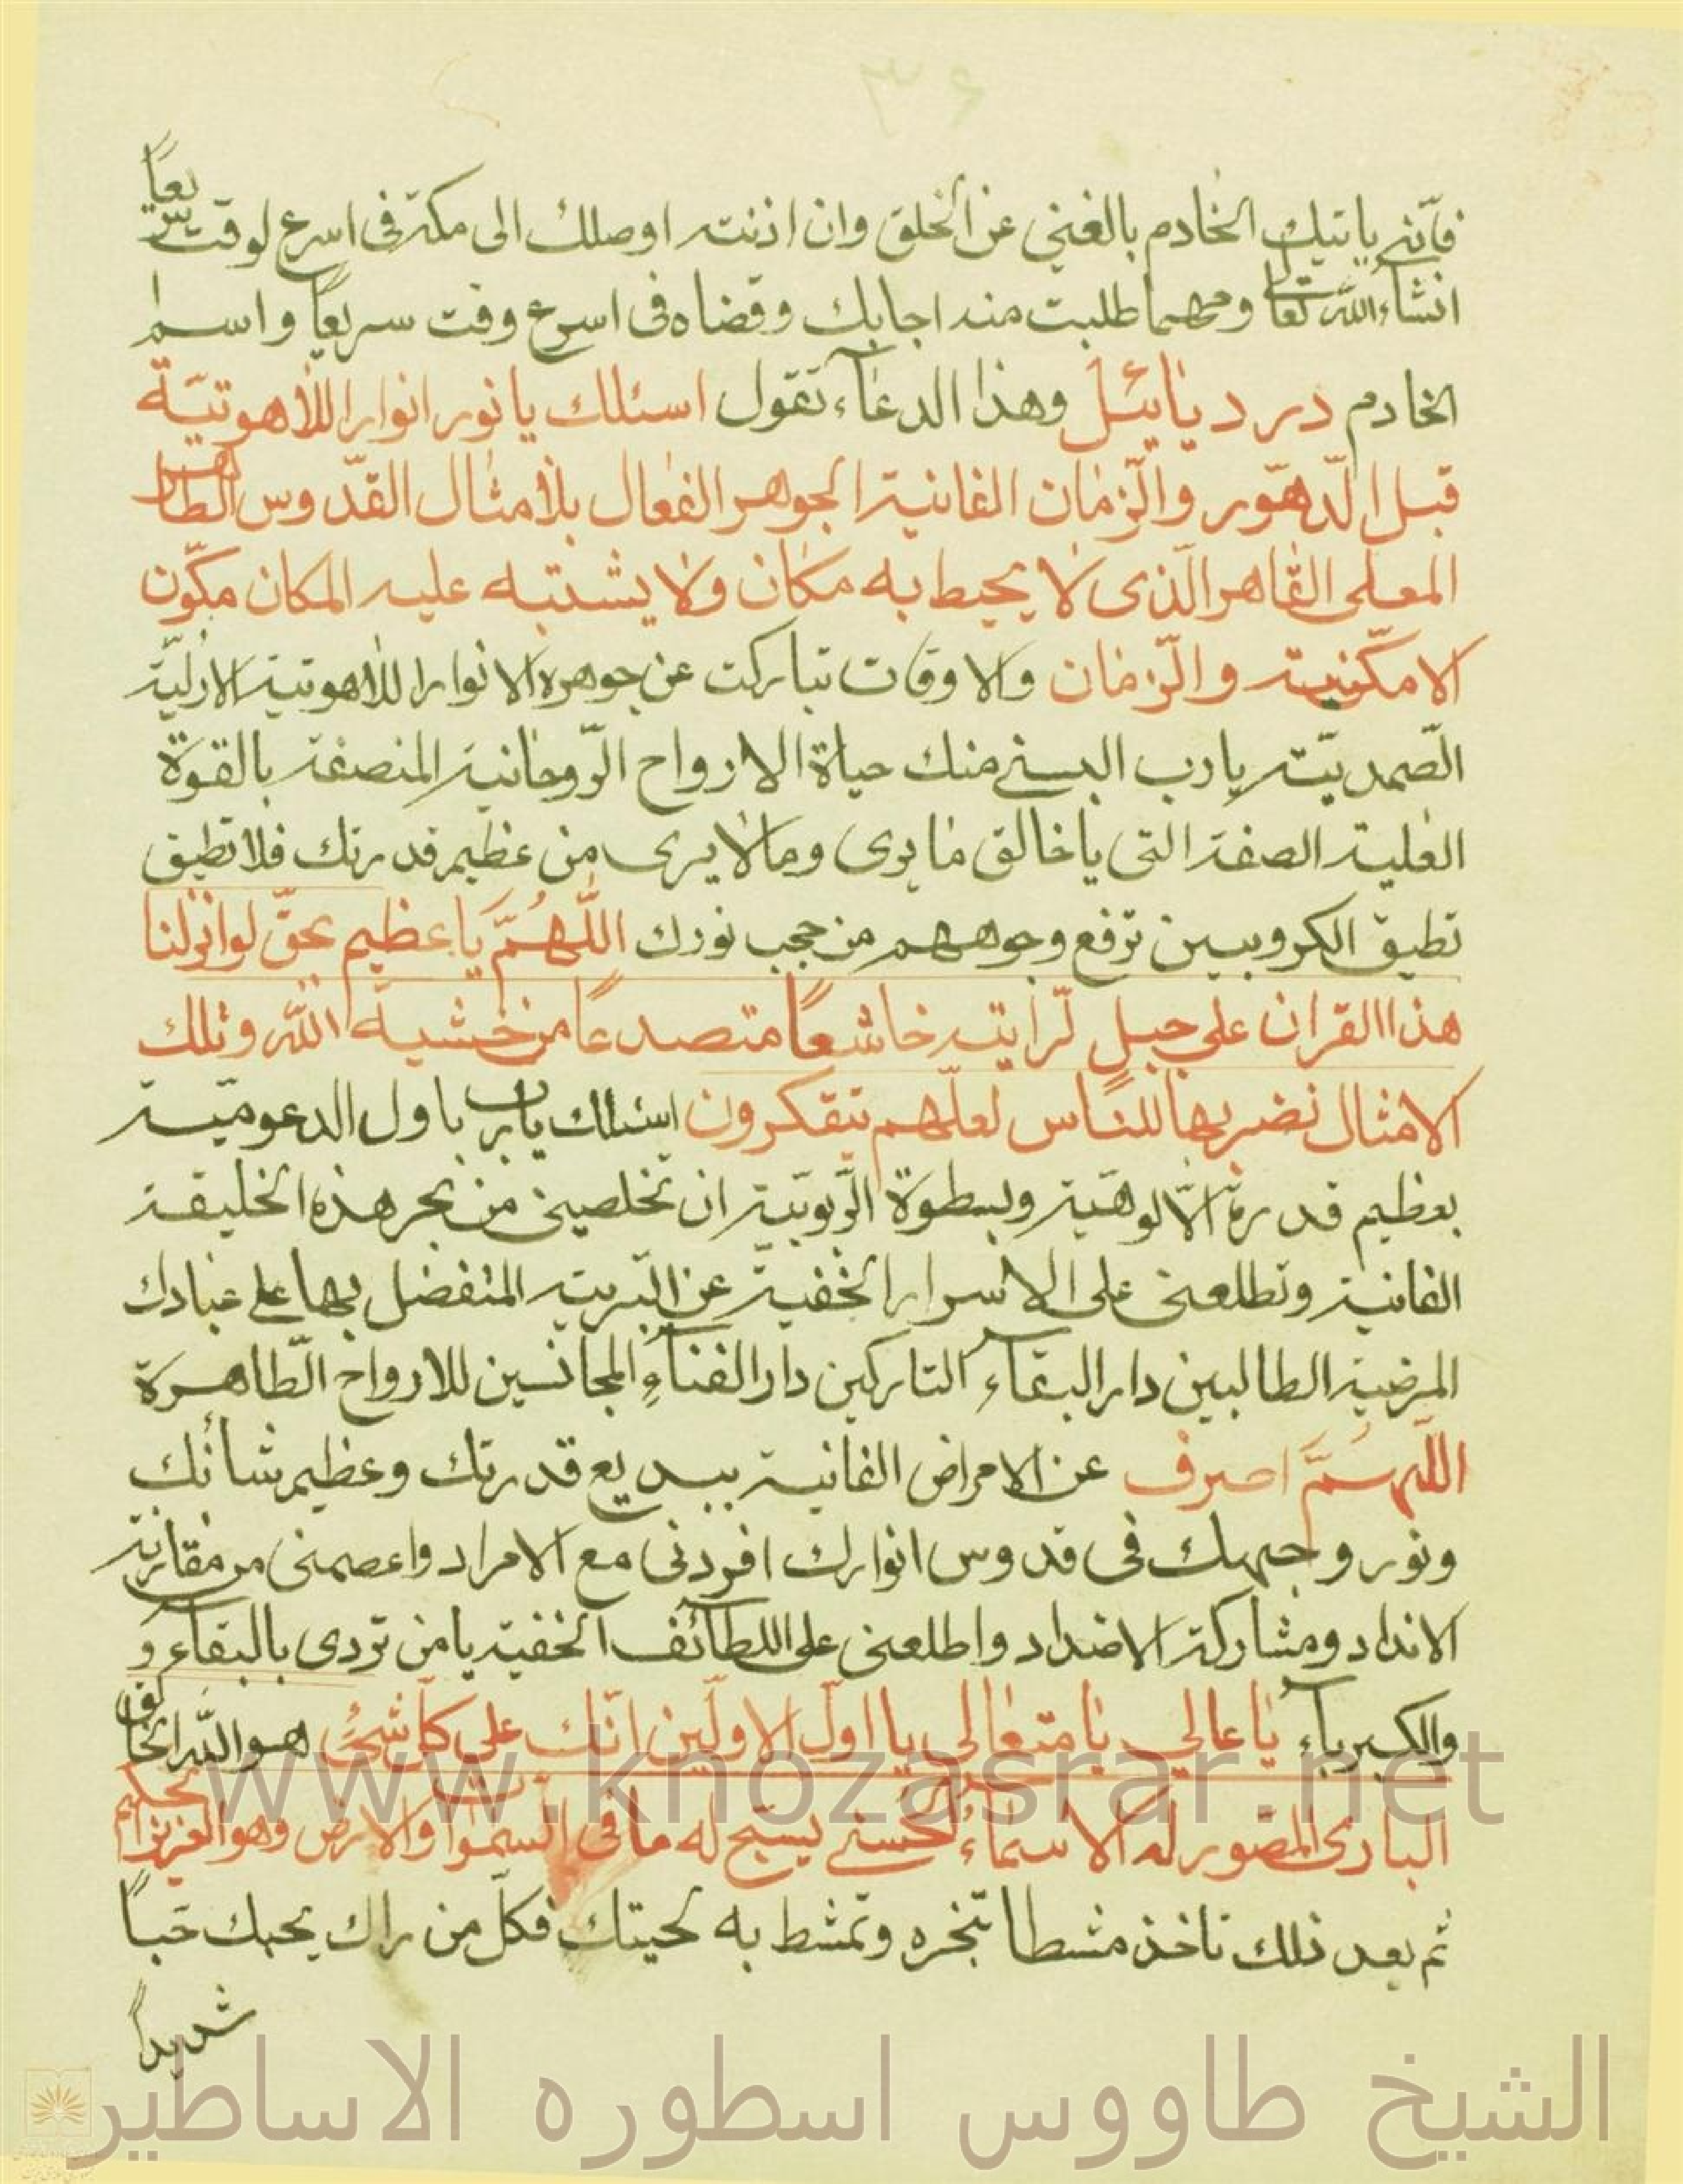 فانه ياتيك الخادم بالغنى عن الخلق وان اذنته اوصلك الى مكة فى اسرع لوقت سريعاً
انشاء الله تعالى ومهما طلبت منه اجابك وقضاه فى اسرع وقت سريعاً واسم
الخادم دردياييل وهذا الدعاء تقول اسئلك يا نور انوار اللاهوتيّة
قبل الدّهور والزّمان الفانية الجوهر الفعال بلا مثال القدّوس الطاهر
المعلى القاهر الّذى لا يحيط به مكان ولا يشتبه عليه المكان مكوّن
الامكنيته والزّمان والاوقات تباركت عن جوهره الانوار اللاهوتية الازليّة
الصّمديّته يارب البسنى منك حياة الارواح الرّوحانية المنصفة بالقوة
العلية الصفة التى يا خالق ما يرى وما لا يرى من عظيم قدرتك فلا تطيق
تطيق الكروبيين ترفع وجوههم من حجب نورك اللّهُمَّ يا عظيم بحقّ لو انزلنا
هذا القران على جبل لّرايته خاشعاً متصدعاً من خشية الله وتلك
الامثال نضربها للناس لعلّهم يتفكرون اسئلك يارب باول الديموميّة
بعظيم قدرة الالوهيّة وبسطوة الرّبوبيّة ان تخلصينى من بحر هذه الخليقة
الفانية وتطلعنى على الاسرار الخفية عن البريته المتفضل بها على عبادك
المرضية الطالبين دار البقاء التاركين دار الفناء المجانسين للارواح الطّاهرة
اللّهمَّ اصرف عن الامراض الفانية ببديع قدرتك وعظيم شأنك
ونور وجهك فى قدوس انوارك افردنى مع الامراد واعصمنى من مقارنة
الانداد ومشاركة الاضداد واطلعنى على اللطائف الخفية يا من تردى بالبقاء و
والكبرياء يا عالي يا متعالى يا اوّل الاولين انّك على كلّ شئ هو الله الخالق
البارى المصّور له الاسماءُ الحسنى يسبّح له ما فى السّموات والارض وهو العزيز الحكيم
ثم بعد ذلك تاخذ مشطا تبخره وتمشط به لحيتك فكلّ من راك يحبك حباً
شديداً
www.knozasrar.net
الشيخ طاووس اسطوره الاساطير